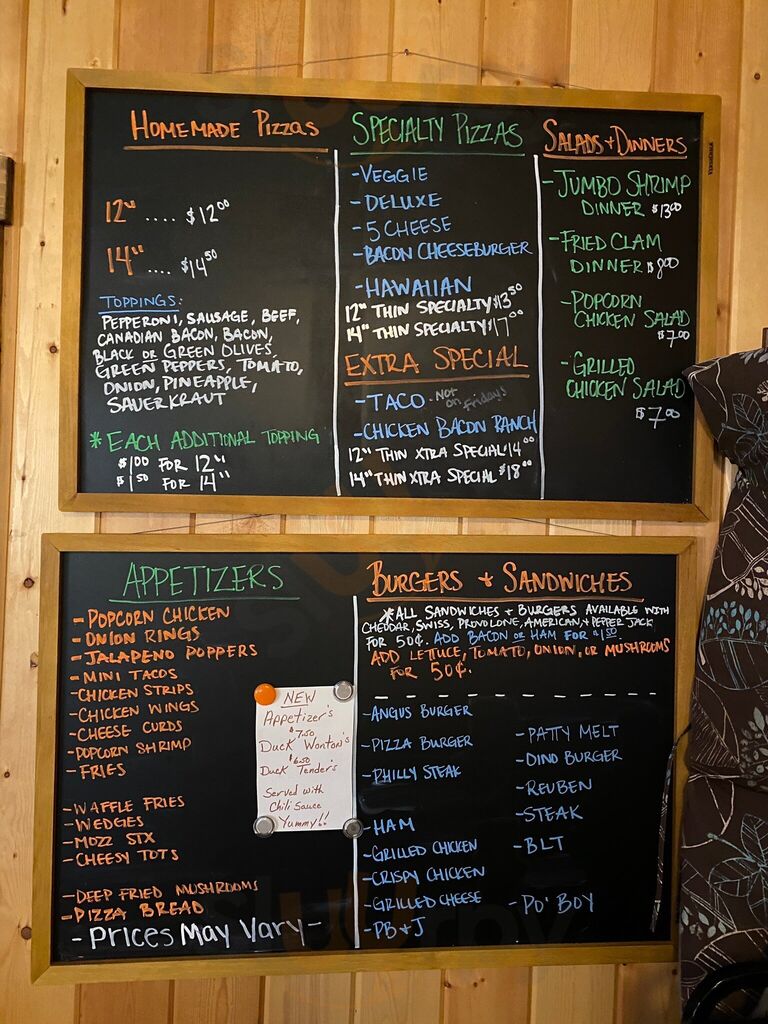 HOMEMADE PIZZAS
12" .... $12.00
14" .... $14.50
TOPPINGS:
PEPPERONI, SAUSAGE, BEEF,
CANADIAN BACON, BACON,
BLACK OR GREEN OLIVES,
GREEN PEPPERS, TOMATO,
ONION, PINEAPPLE,
SAUERKRAUT
* EACH ADDITIONAL TOPPING
$1.00 FOR 12"
$1.50 FOR 14"
SPECIALTY PIZZAS
-VEGGIE
-DELUXE
-5 CHEESE
-BACON CHEESEBURGER
-HAWAIIAN
12" THIN SPECIALTY $13.50
14" THIN SPECIALTY $17.00
EXTRA SPECIAL
-TACO. NOT
on Fridays
-CHICKEN BACON RANCH
12" THIN XTRA SPECIAL $14.00
14" THIN XTRA SPECIAL $18.00
SALADS + DINNERS
-JUMBO SHRIMP
DINNER $13.00
-FRIED CLAM
DINNER $8.00
-POPCORN
CHICKEN SALAD
$7.00
-GRILLED
CHICKEN SALAD
$7.00
APPETIZERS
-POPCORN CHICKEN
-ONION RINGS
-JALAPENO POPPERS
-MINI TACOS
-CHICKEN STRIPS
-CHICKEN WINGS
-CHEESE CURDS
-POPCORN SHRIMP
-FRIES
-WAFFLE FRIES
-WEDGES
-MOZZ STX
-CHEESY TOTS
-DEEP FRIED MUSHROOMS
-PIZZA BREAD
-PRICES MAY VARY-
NEW
Appetizer's
$7.50
Duck Wonton's
$6.50
Duck Tender's
Served with
Chili Sauce
Yummy!!
BURGERS + SANDWICHES
*ALL SANDWICHES + BURGERS AVAILABLE WITH
CHEDDAR, SWISS, PROVOLONE, AMERICAN, + PEPPER JACK
FOR 50¢. ADD BACON OR HAM FOR $1.50
ADD LETTUCE, TOMATO, ONION, OR MUSHROOMS
FOR 50¢.
-ANGUS BURGER
-PIZZA BURGER
-PHILLY STEAK
-HAM
-GRILLED CHICKEN
-CRISPY CHICKEN
-GRILLED CHEESE
-PB+J
-PATTY MELT
-DINO BURGER
-REUBEN
-STEAK
-BLT
-PO' BOY